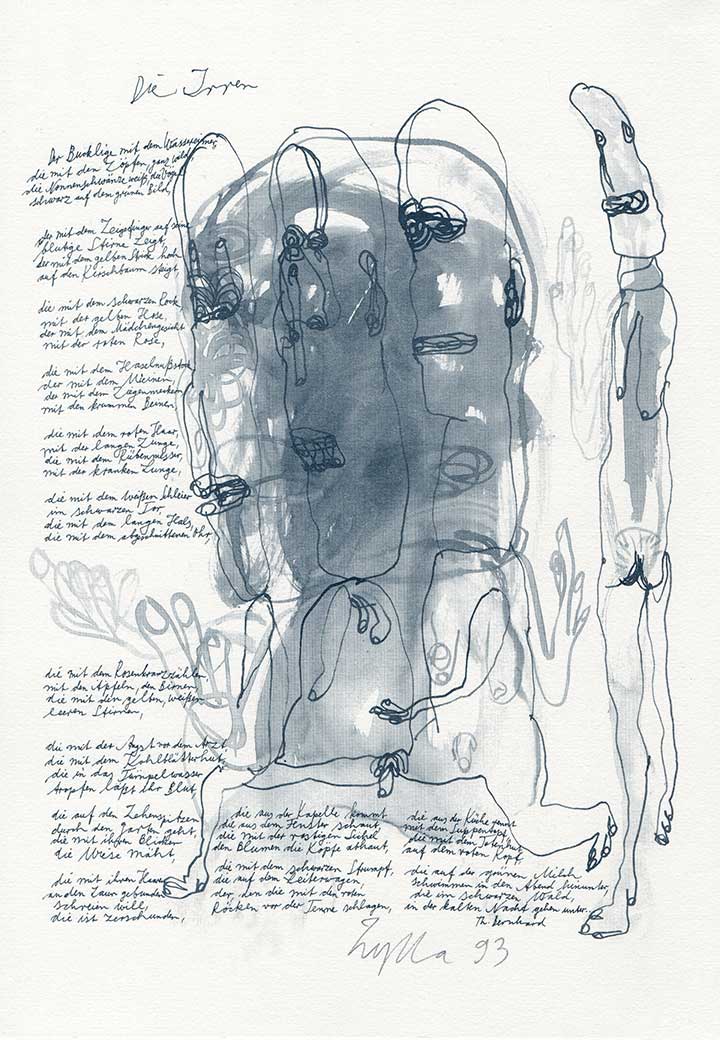 Die Irren
Der Bucklige mit dem
die mit den Zöpfen, ganz wild,
die Nonnenschwänze weiß, die Vögel
schwarz auf dem grünen Bild,
der mit dem Zeigefinger auf seine
blutige Stirne zeigt,
der mit dem gelben Stock hoch
auf den Kirschbaum steigt,
die mit dem schwarzen Rock,
mit der gelben Hose,
der mit dem Mädchengesicht
mit der roten Rose,
die mit dem Haselnußstock
der mit dem Meinen,
der mit dem Ziegenmeckern
mit den krummen Beinen,
die mit dem roten Haar,
mit der langen Zunge,
die mit dem Rübenmesser,
mit der kranken Lunge,
die mit dem weißen Schleier
im schwarzen Tor
die mit dem langen Hals,
die mit dem abgeschnittenen Ohr,
die mit dem Rosenkranzzählen,
mit den Äpfeln, den Birnen,
die mit den gelben, weißen
leeren Stirnen,
die mit der Angst vor dem Arzt,
die mit dem Kohlblätterhut,
die in das Tümpelwasser
tropfen läßt ihr Blut
die auf den Zehenspitzen
durch den Garten geht,
die mit ihren Blicken
die Wiese mäht,
die mit ihren Haaren
an den Zaun gebunden
schreien will,
die ist zerschunden,
die aus der Kapelle kommt
die aus dem Fenster schaut
die mit der rostigen Sichel
den Blumen die Köpfe abhaut,
die mit dem schwarzen Strumpf,
die auf dem Leiterwagen,
der, den die mit den roten
Röcken vor der Tenne schlagen,
die aus der Küche rennt
mit dem Suppentopf,
die mit dem Totenhut
auf dem roten Kopf,
die auf der grünen Milch
schwimmen in den Abend hinunter,
die im schwarzen Wald,
in der kalten Nacht gehen unter.
Th. Bernhard
Zylla 93